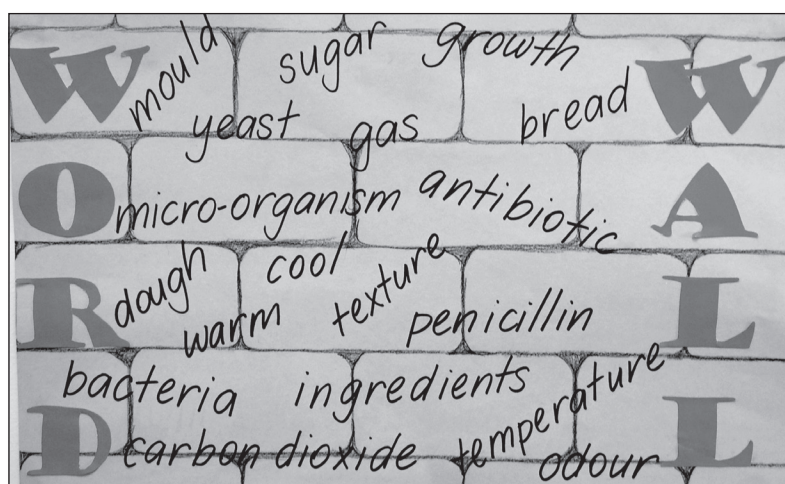 WORD
WALL
mould
sugar
growth
yeast
gas
bread
micro-organism
antibiotic
dough
cool
warm
texture
penicillin
bacteria
ingredients
carbon dioxide
temperature
odour